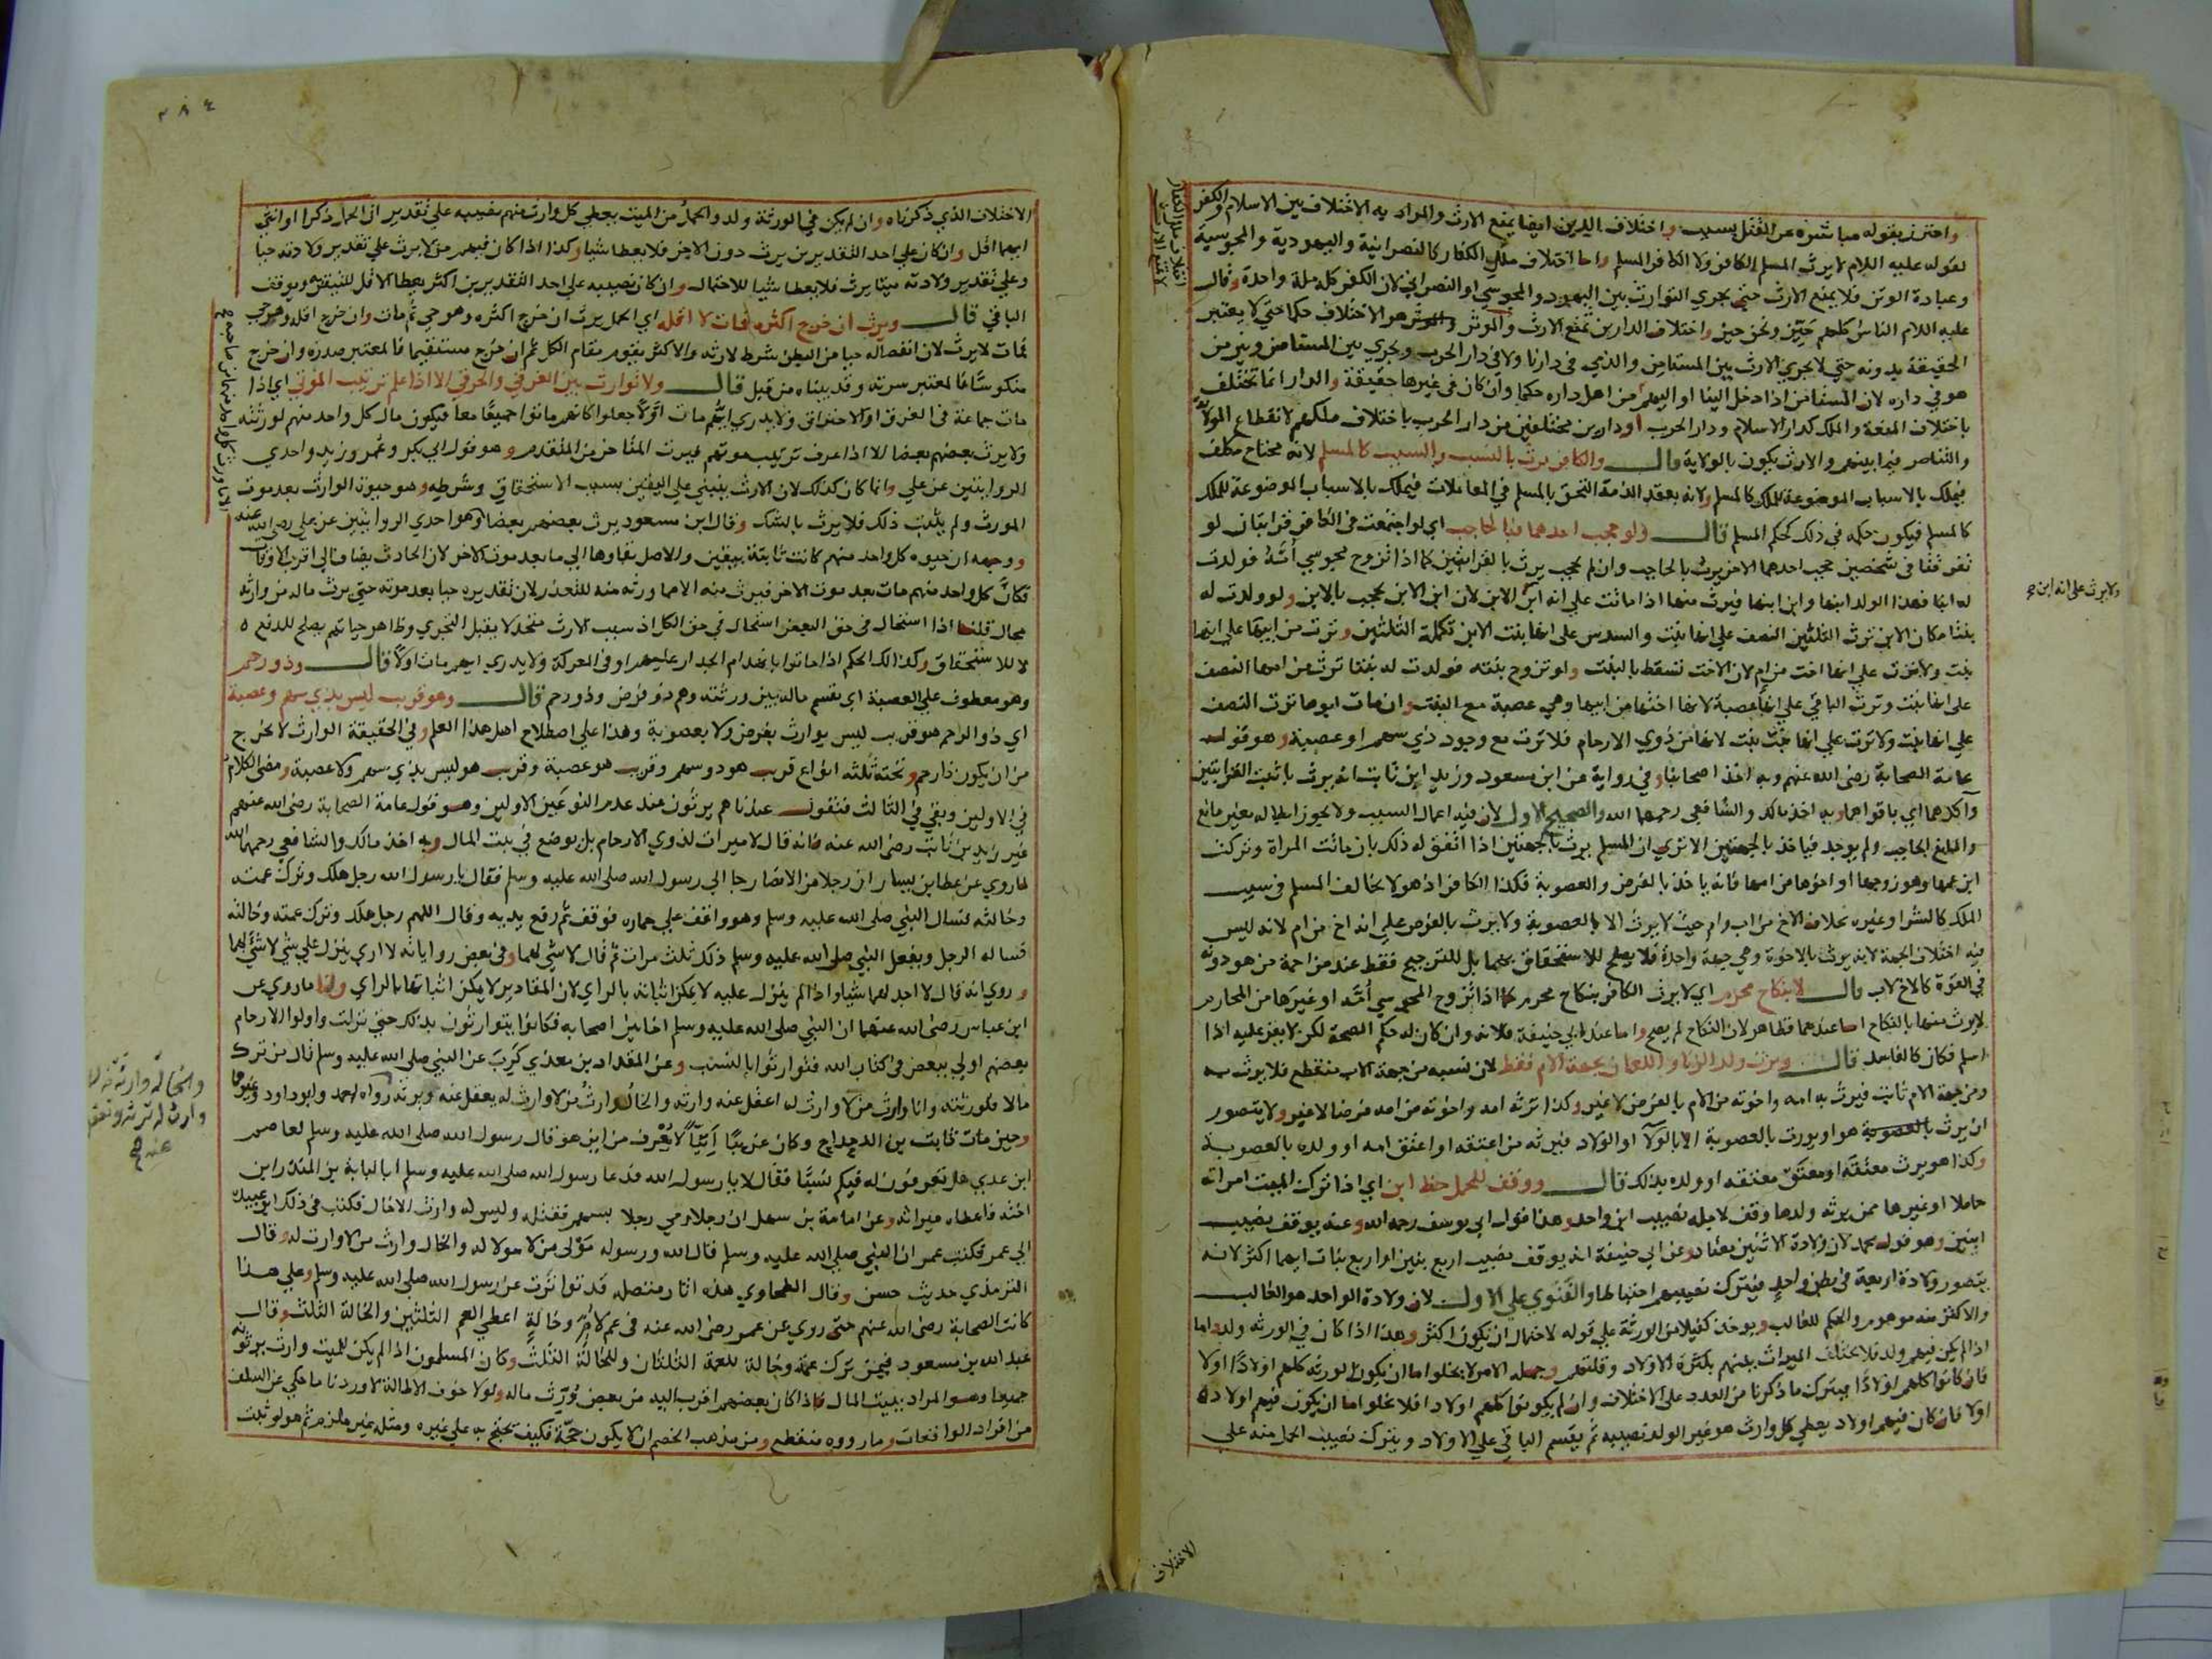 واحترز بقوله مباشرة عن القتل بسبب واختلاف الدين ايضا يمنع الارث والمراد به الاختلاف بين الاسلام والكفر
لقوله عليه اللام لا يرث المسلم الكافر ولا الكافر المسلم واما اختلاف ملل الكفار كالنصرانية واليهودية والمجوسية
وعبادة الوثن فلا يمنع الارث حتى يجري التوارث بين اليهودو المجوسي او النصراني لان الكفر كله ملة واحدة وقال
عليه اللام الناس كلهم حيز ونحن حيز واختلاف الدارين يمنع الارث والموثر هو الاختلاف حكما حتى لا يعتبر
الحقيقة بدونه حتى لا يجري الارث بين المستامن والذمي في دارنا ولا في دار الحرب ويجري بين المستامن وبين من
هو في داره لان المستامن اذا دخل الينا او اليهم من اهل داره حكما وان كان في غيرها حقيقة والدار انما تختلف
باختلاف المنعة والملك كدار الاسلام ودار الحرب او دارين مختلفين من دار الحرب باختلاف ملكهم لانقطاع الولاية
والتناصر فيما بينهم والارث يكون بالولاية قال والكافر يرث بالنسب والسبب كالمسلم لانه محتاج مكلف
فيملك بالاسباب الموضوعة للملك كالمسلم ولانه بعقد الذمة التحق بالمسلم في المعاملات فيملك بالاسباب الموضوعة للملك
كالمسلم فيكون حكمه في ذلك كحكم المسلم قال ولو حجب احدهما فبالحاجب اي لو اجتمعت في الكافر قرابتان لو
تفرقتا في شخصين حجب احدهما الاخر يرث بالحاجب وان لم يحجب يرث بالقرابتين كما اذا تزوج مجوسي امه فولدت
له ابنا فهذا الولد ابنها وابن ابنها فيرث منها اذا ماتت على انه ابن الابن لان ابن الابن يحجب بالابن ولو ولدت له
بنتا مكان الابن ترث الثلثين النصف على انها بنت والسدس على انها بنت الابن تكملة الثلثين وترث من ابيها على انها
بنت ولا ترث على انها اخت من ام لان الاخت تسقط بالبنت ولو تزوج بنته فولدت له بنتا ترث من امها النصف
على انها بنت وترث الباقي على انها عصبة لانها اختها من ابيها وهي عصبة مع البنت وان مات ابوها ترث النصف
على انها بنت ولا ترث على انها بنت بنت لانها من ذوي الارحام فلا ترث مع وجود ذي سهم او عصبة وهو قول
عامة الصحابة رضى الله عنهم وبه اخذ اصحابنا وفي رواية عن ابن مسعود وزيد ابن ثابت انه يرث باثبت القرابتين
وآكدهما اي باقواهما وبه اخذ مالك والشافعي رحمهما الله والصحيح الاول لان فيه اعمال السبب ولا يجوز ابطاله بغير مانع
والمانع الحاجب ولم يوجد فياخذ بالجهتين الا ترى ان المسلم يرث بالجهتين اذا اتفق له ذلك بان ماتت المراة وتركت
ابن عمها وهو زوجها او اخوها من امها فانه ياخذ بالفرض والعصوبة فكذا الكافر اذ هو لا يخالف المسلم في سبب
الملك كالشرا وغيره بخلاف الاخ من اب وام حيث لا يرث الا بالعصوبة ولا يرث بالفرض على انه اخ من ام لانه ليس
فيه اختلاف الجهة لانه يرث بالاخوة وهي جهة واحدة فلا يصلح للاستحقاق بهما بل للترجيح فقط عند مزاحمة من هو دونه
في القوة كالاخ لاب قال لا بنكاح محرم اي لا يرث الكافر بنكاح محرم كما اذا تزوج المجوسي امه او غيرها من المحارم
لا يرث منها بالنكاح اما عندهما فظاهر لان النكاح لم يصح واما عند ابي حنيفة فلانه وان كان له حكم الصحة لكن لا يقر عليه اذا
اسلم فكان كالفاسد قال ويرث ولد الزنا واللعان بجهة الام فقط لان نسبه من جهة الاب منقطع فلا يرث به
ومن جهة الام ثابت فيرث به امه واخوته من الام بالفرض لا غير وكذا ترثه امه واخوته من امه فرضا لا غير ولا يتصور
ان يرث بالعصوبة هو او يورث بالعصوبة الا بالولا او الولاد فيرثه من اعتقه او اعتق امه او ولده بالعصوبة
وكذا هو يرث معتقه او معتق معتقه او ولده بذلك قال ووقف للحمل حظ ابن اي اذا ترك الميت امراته
حاملا او غيرها ممن يرثه ولدها وقف لاجله نصيب ابن واحد وهذا قول ابي يوسف رحمه الله وعنه يوقف نصيب
ابنين وهو قول محمد لان ولادة الاثنين معتاد وعن ابي حنيفة انه يوقف نصيب اربع بنين او اربع بنات ايهما اكثر لانه
يتصور ولادة اربعة في بطن واحد فيترك نصيبهم احتياطا والفتوى على الاول لان ولادة الواحد هو الغالب
والاكثر منه موهوم والحكم للغالب ويوخذ كفيلا من الورثة على قوله لاحتمال ان يكون اكثر وهذا اذا كان في الورثة ولد واما
اذا لم يكن فيهم ولد فلا يختلف الميراث بينهم بكثرة الاولاد وقلتهم وجملة الامر لا يخلوا ما ان يكون الورثة كلهم اولادا او لا
فان كانوا كلهم اولادا فيترك ما ذكرنا من العدد على الاختلاف وان لم يكونوا كلهم اولادا فلا يخلوا ما ان يكون فيهم اولاد
اولا فان كان فيهم اولاد يعطى كل وارث هو غير الولد نصيبه ثم يقسم الباقي على الاولاد ويترك نصيب الحمل منه على
ولا يرث على انه ابن
الاختلاف
٣٨٤
الاختلاف الذي ذكرناه وان لم يكن في الورثة ولد والحمل من الميت يعطى كل وارث منهم نصيبه على تقدير ان الحمل ذكرا او انثى
ايهما اقل وان كان على احد التقديرين يرث دون الاخر فلا يعطا شيا وكذا اذا كان فيهم من لا يرث على تقدير ولادته حيا
وعلى تقدير ولادته ميتا يرث فلا يعطا شيا للاحتمال وان كان نصيبه على احد التقديرين اكثر يعطا الاقل للتيقن به ويوقف
الباقي قال ويرث ان خرج اكثره فمات لا اقله اي الحمل يرث ان خرج اكثره وهو حي ثم مات وان خرج اقله وهو حي
فمات لا يرث لان انفصاله حيا من البطن شرط لارثه والاكثر يقوم مقام الكل ثم ان خرج مستقيما فالمعتبر صدره وان خرج
منكوسا فالمعتبر سرته وقد بيناه من قبل قال ولا توارث بين الغرقي والحرقي الا اذا علم ترتيب الموتي اي اذا
مات جماعة في الغرق او الاحتراق ولا يدري ايهم مات اولا جعلوا كانهم ماتوا جميعا معا فيكون مال كل واحد منهم لورثته
ولا يرث بعضهم بعضا الا اذا عرف ترتيب موتهم فيرث المتاخر من المتقدم وهو قول ابي بكر وعمر وزيد واحدي
الروايتين عن علي وانما كان كذلك لان الارث ينبني على اليقين بسبب الاستحقاق وشرطه وهو حيوة الوارث بعد موت
المورث ولم يثبت ذلك فلا يرث بالشك وقال ابن مسعود يرث بعضهم بعضا وهو احدي الروايتين عن علي رضى الله عنه
ووجهه ان حيوه كل واحد منهم كانت ثابتة بيقين والاصل بقاوها الى ما بعد موت الاخر لان الحادث يضاف الى اقرب الاوقات
فكان كل واحد منهم مات بعد موت الاخر فيرث منه الا مما ورثه منه للتعذر لان تقديره حيا بعد موته حتى يرث ماله من وارثه
محال قلنا اذا استحال في حق البعض استحال في حق الكل اذ سبب الارث متحد لا يقبل التجزي وظاهر حياتهم يصلح للدفع
لا للاستحقاق وكذلك الحكم اذا ماتوا بانهدام الجدار عليهم او في المعركة ولا يدري ايهم مات اولا قال وذو رحم
وهو معطوف على العصبة اي يقسم ماله بين ورثته وهم ذو فرض وذو رحم قال وهو قريب ليس بذي سهم وعصبة
اي ذو الرحم هو قريب ليس بوارث بفرض ولا بعصوبة وهذا على اصطلاح اهل هذا العلم وفي الحقيقة الوارث لا يخرج
من ان يكون ذا رحم وتحته ثلثه انواع قريب هو ذو سهم وقريب هو عصبة وقريب هو ليس بذي سهم ولا عصبة ومضى الكلام
في الاولين وبقي في الثالث فنقول عندنا هم يرثون عند عدم النوعين الاولين وهو قول عامة الصحابة رضى الله عنهم
غير زيد بن ثابت رضى الله عنه فانه قال لا ميراث لذوي الارحام بل يوضع في بيت المال وبه اخذ مالك والشافعي رحمهما الله
لما روي عن عطا بن يسار ان رجلا من الانصار جا الى رسول الله صلى الله عليه وسلم فقال يا رسول الله رجل هلك وترك عمته
وخالته فسال النبي صلى الله عليه وسلم وهو واقف على حماره فوقف ثم رفع يديه وقال اللهم رجل هلك وترك عمته وخالته
فساله الرجل ويفعل النبي صلى الله عليه وسلم ذلك ثلث مرات ثم قال لا شي لهما وفي بعض رواياته لا اري ينزل علي شي لا شي لهما
وروي انه قال لا اجد لهما شيا واذا لم ينزل عليه لا يمكن اثباته بالراي لان المقادير لا يمكن اثباتها بالراي ولنا ما روي عن
ابن عباس رضى الله عنهما ان النبي صلى الله عليه وسلم اخا بين اصحابه فكانوا يتوارثون بذلك حتى نزلت واولوا الارحام
بعضهم اولى ببعض في كتاب الله فتوارثوا بالنسب وعن المقداد بن معدي كرب عن النبي صلى الله عليه وسلم قال من ترك
مالا فلورثته وانا وارث من لا وارث له اعقل عنه وارثه والخال وارث من لا وارث له يعقل عنه ويرثه رواه احمد وابو داود وغيرهما
وحين مات ثابت بن الدحداح وكان غريبا اتيا لا يعرف من اين هو قال رسول الله صلى الله عليه وسلم لعاصم
ابن عدي هل تعرفون له فيكم نسبا فقال لا يا رسول الله فدعا رسول الله صلى الله عليه وسلم ابا لبابة بن المنذر ابن
اخته فاعطاه ميراثه وعن امامة بن سهل ان رجلا رمي رجلا بسهم فقتله وليس له وارث الا خال فكتب في ذلك ابو عبيدة
الى عمر فكتب عمر ان النبي صلى الله عليه وسلم قال الله ورسوله مولى من لا مولا له والخال وارث من لا وارث له وقال
الترمذي حديث حسن وقال الطحاوي هذه اثار متصله قد تواترت عن رسول الله صلى الله عليه وسلم وعلى هذا
كانت الصحابة رضى الله عنهم حتى روي عن عمر رضى الله عنه في عم لام وخالة اعطي العم الثلثين والخالة الثلث وقال
عبد الله بن مسعود فيمن ترك عمة وخالة للعمة الثلثان وللخالة الثلث وكان المسلمون اذا لم يكن للميت وارث يرثونه
جميعا وهو المراد ببيت المال فاذا كان بعضهم اقرب اليه من بعض يورث ماله ولولا خوف الاطالة لاوردنا ما حكي عن السلف
من افراد الواقعات وما رووه منقطع ومن مذهب الخصم ان لا يكون حجة فكيف يحتج به على غيره ومثله غير ملزم ثم هو لو ثبت
والخالة وارثة
وارث له ترثه وتعقل
عنه